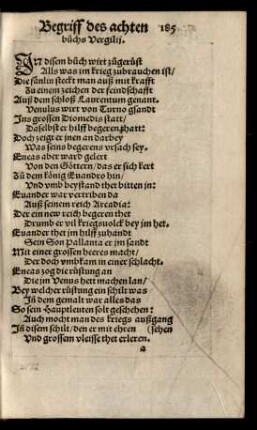 Begriff des achten 185
bůchs Vergilij.
IN disem bůch wirt zůgerüst
Alls was im krieg zubrauchen ist/
Die fänlin steckt man auß mit krafft
Zu einem zeichen der feindschafft
Auß dem schloß Laurentum genant.
Venulus wirt von Turno gsandt
Ins grossen Diomedis statt/
Daselbst er hilff begeren that:
Doch zeigt er jnen an darbey
Was seins begerens vrsach sey.
Eneas aber ward gelert
Von den Göttern/das er sich kert
Zů dem könig Euandro hin/
Vnd vmb beystand thet bitten jn:
Euander war vertriben da
Auß seinem reich Arcadia:
Der ein new reich begeren thet
Drumb er vil kriegsuolck bey jm het.
Euander thet jm hilff zuhandt
Sein Son Pallanta er jm sandt
Mit einer grossen heeres macht/
Der doch vmbkam in einer schlacht.
Eneas zog die rüstung an
Die jm Venus hett machen lan/
Bey welcher rüstung ein schilt was
Jn dem gemalt war alles das
So sein Hauptleuten solt geschehen:
Auch mocht man des kriegs außgang
Jn disem schilt/den er mit ehren (sehen
Vnd grossem vleisse thet erleren.